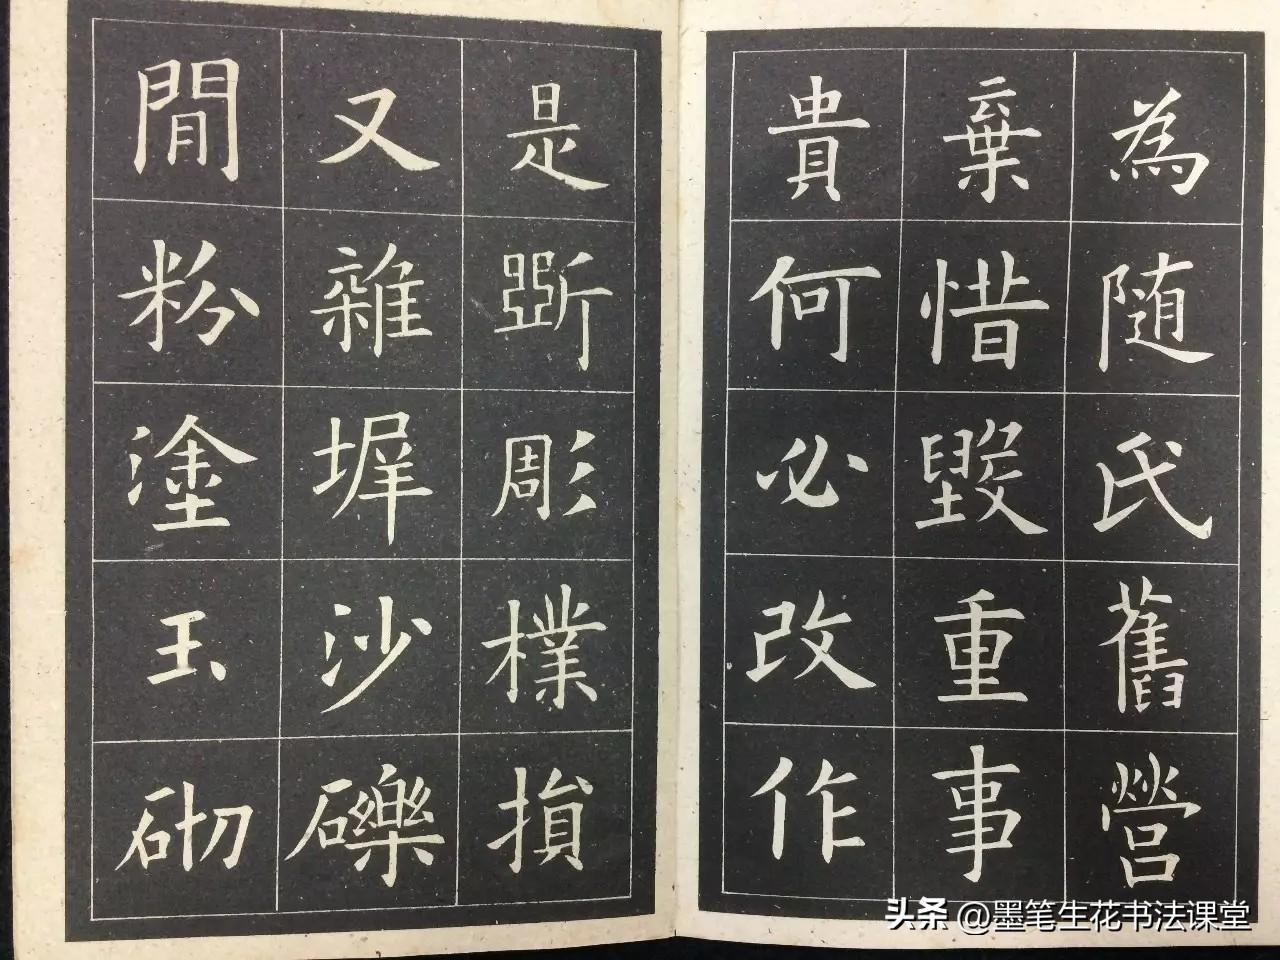 為随氏舊營
棄惜毀重事
貴何必改作
是斲彫樸損
又雜墀沙礫
間粉塗玉砌
头条 @墨笔生花书法课堂